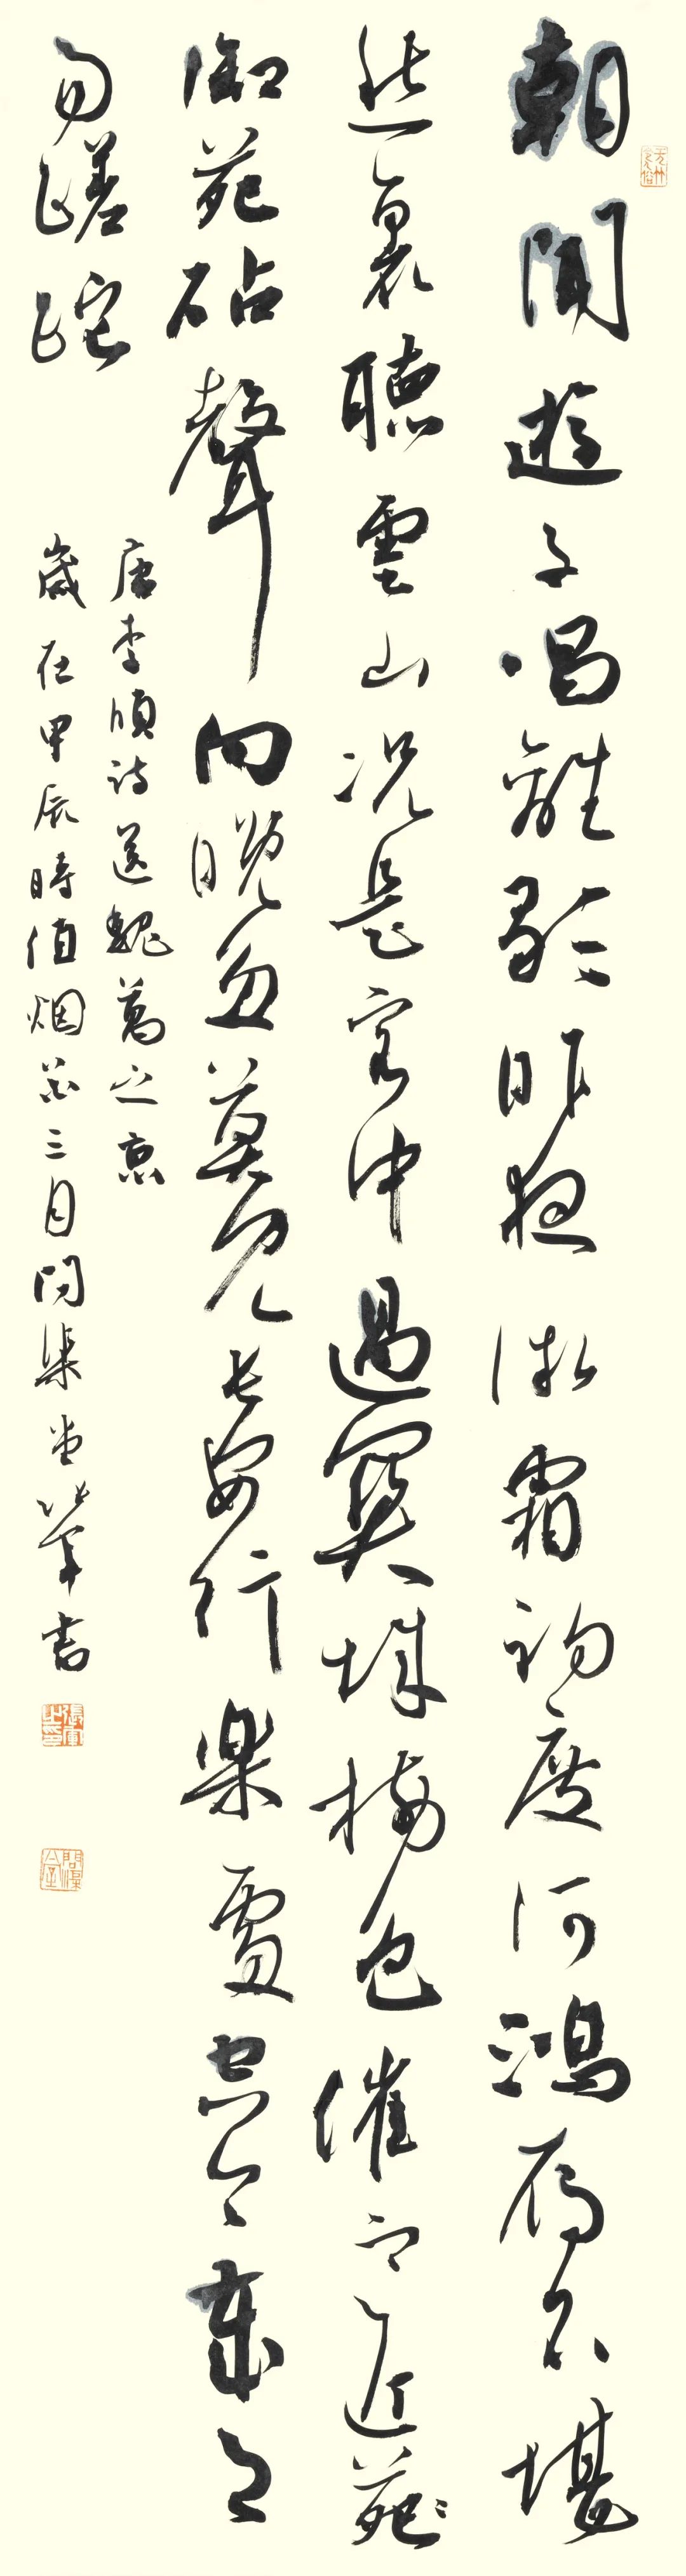 朝聞遊子唱離歌昨夜微霜初度河鴻雁不堪
愁裏聽雲山況是客中過關城樹色催寒近苑
御苑砧聲向晚多莫見長安行樂處空令歲月
易蹉跎
唐李頎詩送魏萬之京
歲在甲辰時值烟花三月問渠堂軍書
張軍之印